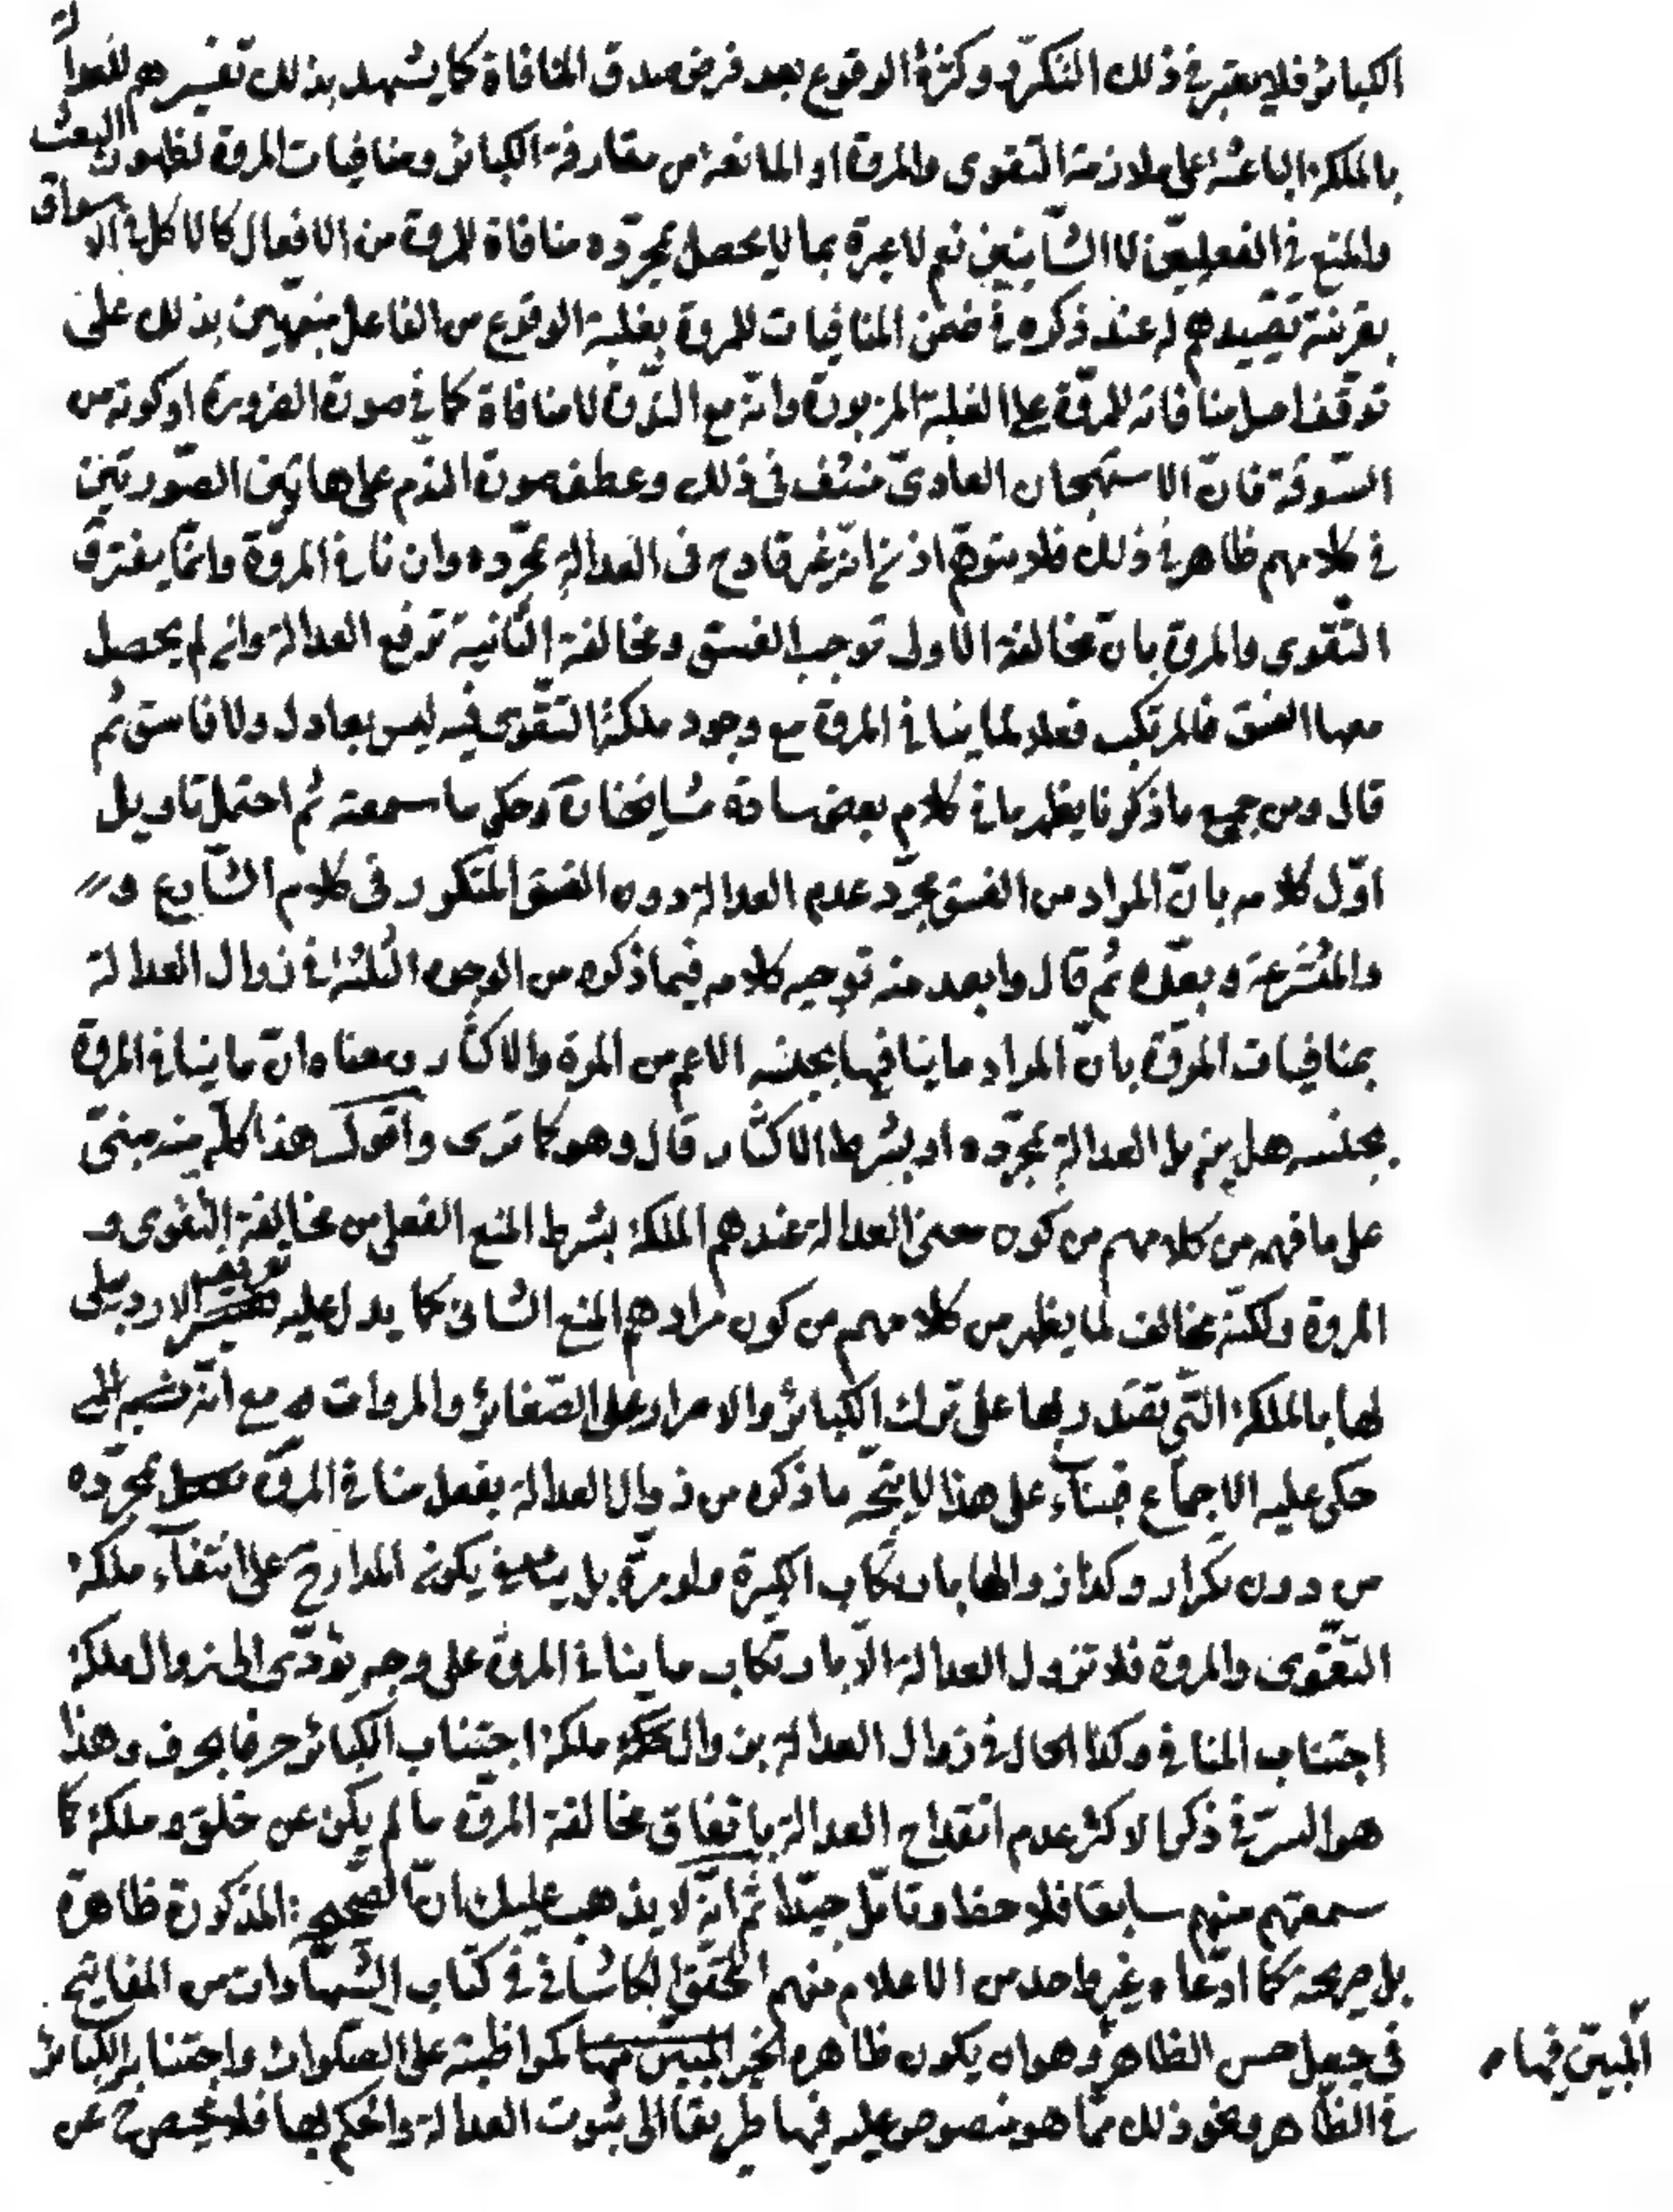 الكبائر فلا يعتبر في ذلك التكرّر وكثرة الوقوع بعد فرض صدق المنافاة كما يشهد بذلك تفسيرهم للعدالة
بالملكة الباعثة على ملازمة التقوى والمروة او المانعة من مقارفة الكبائر ومنافيات المروة لظهور البعث
والمنع في الفعليّين لا الشأنيّين نعم لا عبرة بما لا يحصل بمجرّده منافاة للمروة من الافعال كالاكل في الاسواق
بقرينة تقييدهم له عند ذكره في ضمن المنافيات للمروة بغلبة الوقوع من الفاعل منبّهين بذلك على
توقّف اصل منافاته للمروّة على الغلبة المزبورة وانّه مع النّدرة لا منافاة كما في صورة الضرورة او كونه من
السّوقة فانّ الاستهجان العادىّ منتف فى ذلك وعطف صورة النّدم على هاتين الصّورتين
في كلامهم ظاهر في ذلك فلا يتوهّم اذن انّه غير قادح فى العدالة بمجرّده وان نافى المروّة وانّما يفترق
التّقوى والمروة بانّ مخالفة الاولى توجب الفسق ومخالفة الثّانية ترفع العدالة وان لم يحصل
معها الفسق فالمرتكب فعلا لما ينافي المروة مع وجود ملكة التّقوى فيه ليس بعادل ولا فاسق ثم
قال ومن جميع ما ذكرنا يظهر ما في كلام بعض سادة مشايخنا وحكى ما سمعته ثم احتمل تاويل
اوّل كلامه بانّ المراد من الفسق مجرّد عدم العدالة دون الفسق المتكرر فى كلام الشّارع و
والمتشرعة وبعّده ثم قال وابعد منه توجيه كلامه فيما ذكره من الوجوه الثلثة في زوال العدالة
بمنافيات المروّة بانّ المراد ما ينافيها بجنسه الاعم من المرة والاكثار ومعناه انّ ما ينافي المروّة
بجنسه هل يزيل العدالة بمجرّده او بشرط الاكثار قال وهو كما ترى واقول هذا كلّه منه مبنىّ
على ما فهمه من كلامهم من كون معنى العدالة عندهم الملكة بشرط المنع الفعلى من مخالفة التّقوى و
المروة ولكنّه مخالف لما يظهر من كلامهم من كون مرادهم المنع الشانى كما يدل عليه تعريف الاردبيلى
لها بالملكة التّي يقتدر بها على ترك الكبائر والاصرار على الصّغائر والمروات مع انّه
حكى عليه الاجماع فبناء على هذا لا يتجّه ما ذكره من زوال العدالة بفعل منافي المروّة بمجرّده
من دون تكرار وكذا زوالها بارتكاب الكبيرة ولو مرّة بل ينبغي يكون المدار ح على انتفاء ملكة
التّقوى والمروة فلا تزول العدالة الّا بارتكاب ما ينافي المروّة على وجه يؤدّى الى زوال ملكة
اجتناب المنافي وكذا الحال في زوال العدالة بزوال ملكة اجتناب الكبائر حرفا بحرف وهذا
هو السّرّ في ذكر الاكثر عدم انقداح العدالة باتّفاق مخالفة المروّة ما لم يكن عن خلق وملكة كما
سمعتهم منهم سابقا فلاحظ وتامّل جيّدا ثم انّه لا يذهب عليك انّ الصحيحة المذكورة ظاهرة
بل صريحة كما ادّعاه غير واحد من الاعلام منهم المحقّق الكاشاني في كتاب الشّهادات من المفاتيح
في جعل حسن الظاهر وهو ان يكون ظاهره الخير المبيّن فيها كمواظبته على الصلوات واجتنابه الكبائر
المبيّن فيها
في الظّاهر ونحو ذلك ممّا هو منصوص عليه فيها طريقا الى ثبوت العدالة والحكم بها فلا محيص ح عن